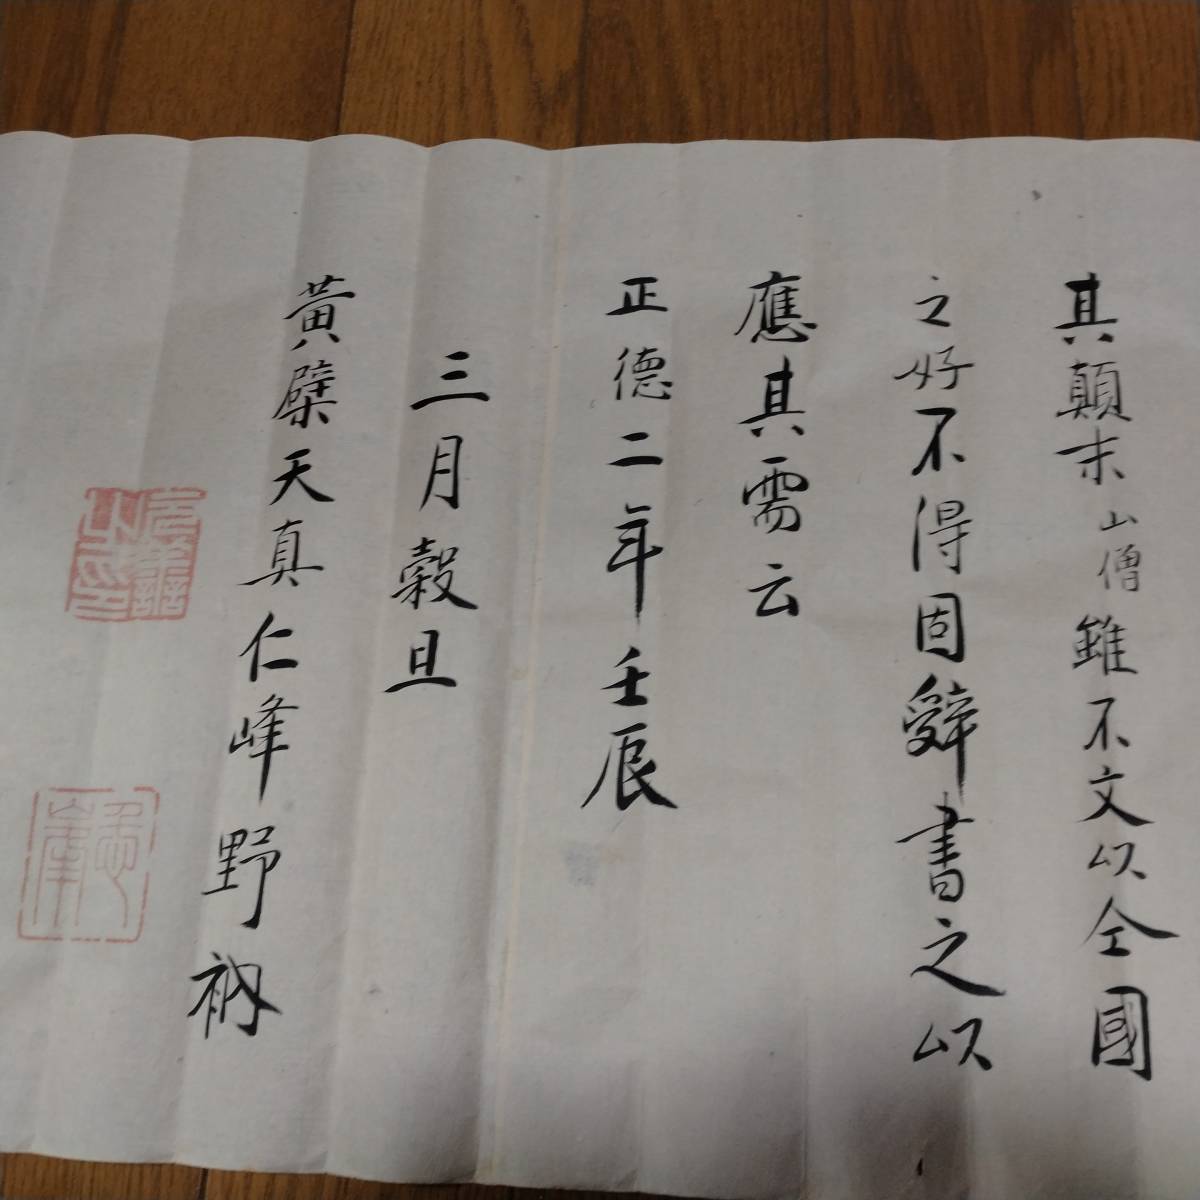 其顛末山僧雖不文以仝國
之好不得固辭書之以
應其需云
正德二年壬辰
三月穀旦
黃檗天真仁峰野衲